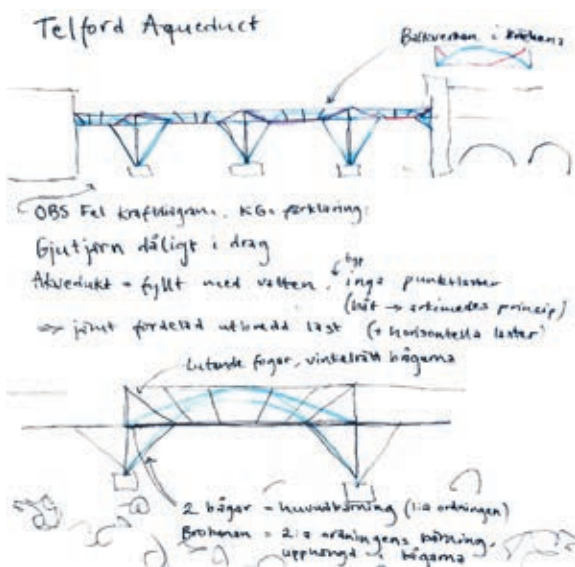 Telford Aqueduct
Balkverkan i
OBS Fel kraftdiagram. KGs förklaring:
Gjutjärn dåligt i drag
Akvedukt = fyllt med vatten, inga punktlaster
typ
(båt → arkimedes princip)
⇒ jämt fördelad utbredd last (+ horisontella laster)
Lutande fogar, vinkelrätt bågarna
2 bågar = huvudbärning (1:a ordningen)
Brobanan = 2:a ordningens bärning,
upphängd i bågarna